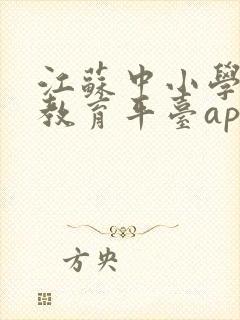 江蘇中小學
教育平臺ap
方央